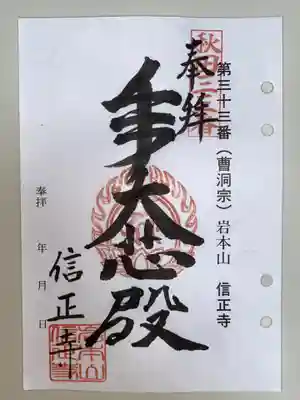 第三十三番（曹洞宗）岩本山　信正寺
奉拝
大悲殿
信正寺
奉拝　年　月　日